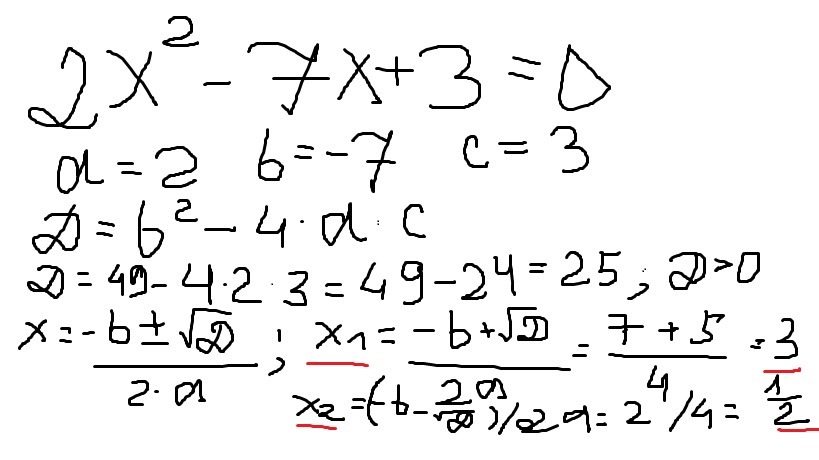 2x² - 7x + 3 = 0
a = 2 b = -7 c = 3
D = b² - 4 · a · c
D = 49 - 4 · 2 · 3 = 49 - 24 = 25 ; D > 0
x = (-b ± √D)/(2 · a) ; x1 = (-b + √D)/(2a) = (7 + 5)/4 = 3
x2 = (-b - √D)/2a = 2/4 = 1/2